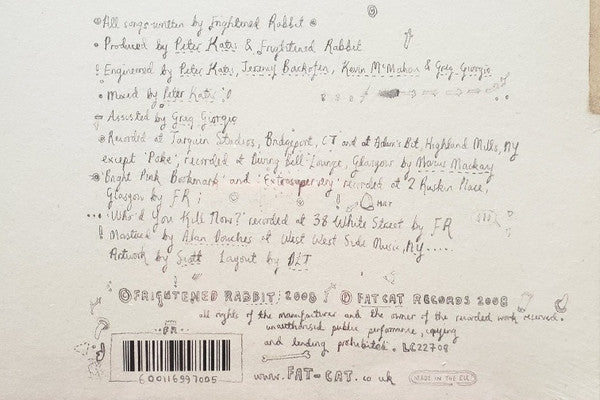 All songs written by Frightened Rabbit
Produced by Peter Katis & Frightened Rabbit
Engineered by Peter Katis, Jeremy Backofen, Kevin McMahon & Greg Giorgio
Mixed by Peter Katis
Assisted by Greg Giorgio
Recorded at Tarquin Studios, Bridgeport, CT and at Adam's Pit, Highland Mills, NY
except 'Poke', recorded at Diving Bell Lounge, Glasgow by Marcus Mackay
'Bright Pink Bookmark' and 'Extrasupervery' recorded at 2 Ruskin Place,
Glasgow by FR ;
'Who'd You Kill Now?' recorded at 38 White Street by FR
Mastered by Alan Douches at West West Side Music, NY.....
Artwork by Scott Layout by DLT
© FRIGHTENED RABBIT 2008 ; ℗ FATCAT RECORDS 2008
all rights of the manufacturer and the owner of the recorded work reserved.
unauthorised public performance, copying
and lending prohibited. LC22708
FR
600116997005
www.FAT-CAT.co.uk
MADE IN THE EU